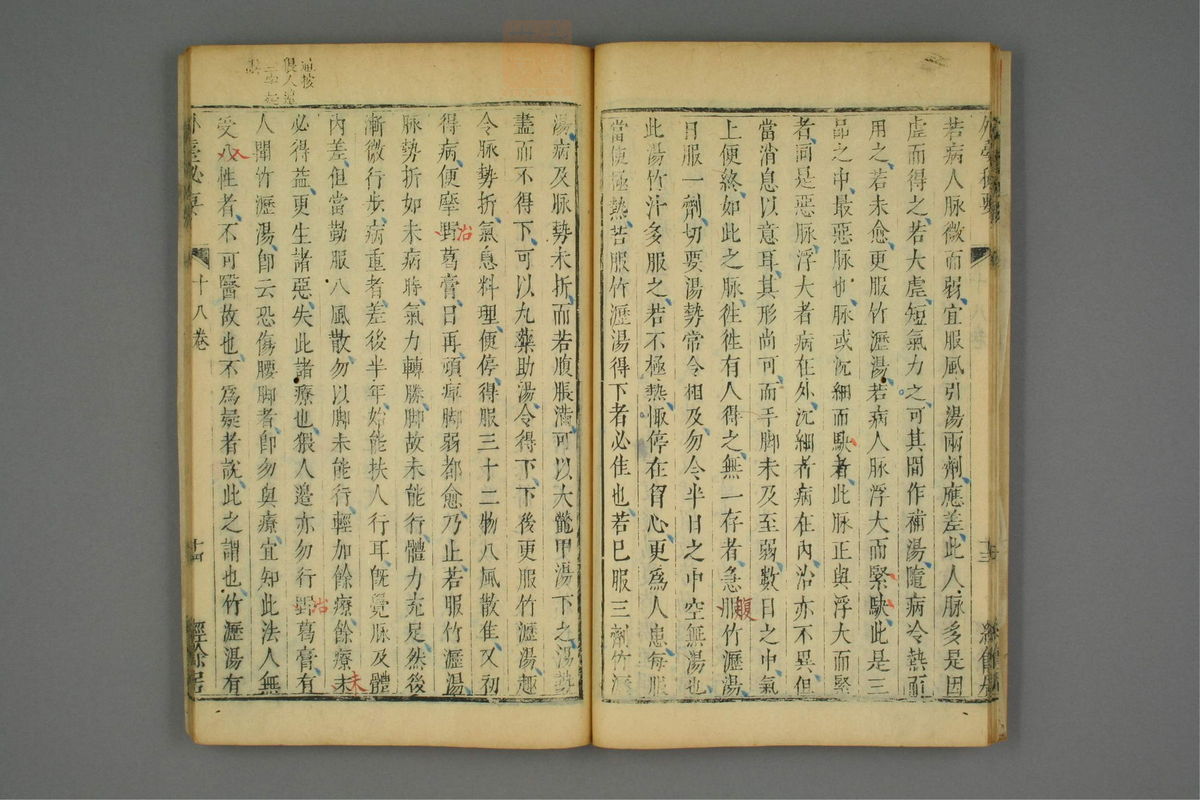 外臺秘要
十三
經餘居
若病人脉微而弱宜服風引湯兩劑應差此人脉多是因
虛而得之若大虛短氣力之可其間作補湯隨病冷熱而
用之若未愈更服竹瀝湯若病人脉浮大而緊駃此是三
品之中最惡脉也脉或沉細而駃者此脉正與浮大而緊
者同是惡脉浮大者病在外沉細者病在內治亦不異但
當消息以意耳其形尚可而手脚未及至弱數日之中氣
上便終如此之脉徃徃有人得之無一存者急服竹瀝湯
日服一劑切要湯勢常令相及勿令半日之中空無湯也
此湯竹汁多服之若不極熱慨停在胷心更爲人患每服
當使極熱苦服竹瀝湯得下者必佳也若巳服三劑竹瀝
腹
湯病及脉勢未折而若腹脹滿可以大鱉甲湯下之湯勢
盡而不得下可以丸藥助湯令得下下後更服竹瀝湯趣
令脉勢折氣息料理便停得服三十二物八風散佳又初
得病便摩野葛膏日再頑痺脚弱都愈乃止若服竹瀝湯
脉勢折如未病時氣力轉勝脚故未能行體力充足然後
漸微行步病重者差後半年始能扶人行耳旣覺脉及體
內差但當勤服八風散勿以脚未能行輕加餘療餘療未
必得益更生諸惡失此諸療也猥人邉亦勿行野葛膏有
人聞竹瀝湯卽云恐傷腰脚者卽勿與療宜知此法人無
受八性者不可醫故也不爲疑者說此之謂也竹瀝湯有
治
治
夫
外臺秘要
十八卷
十四
經餘居
猥人邉